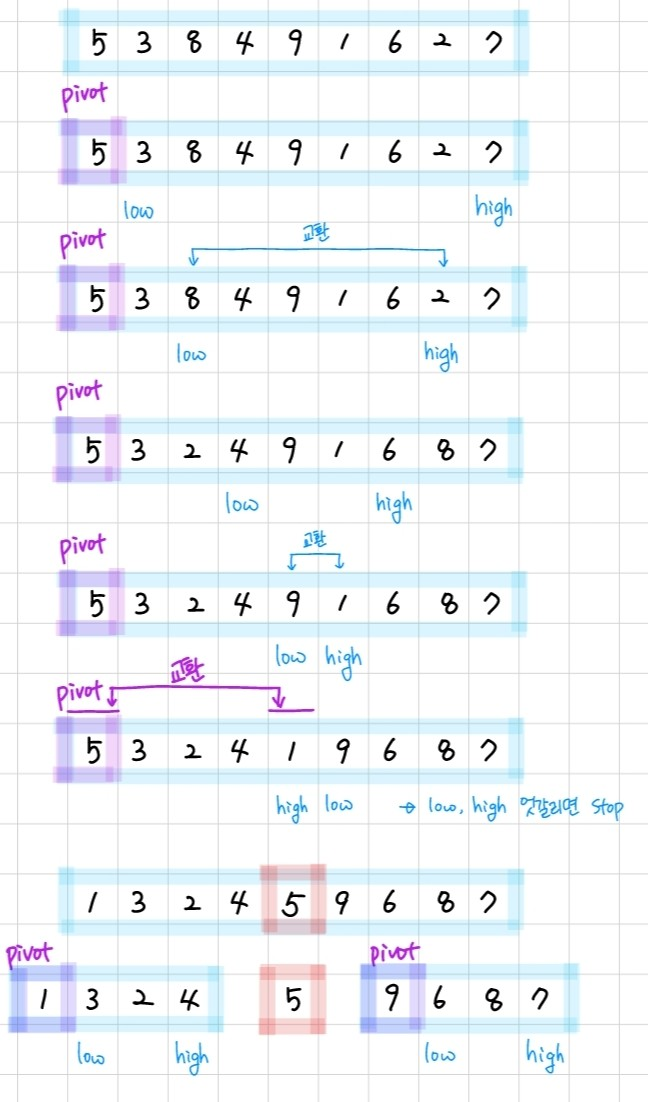 5 3 8 4 9 1 6 2 7
pivot
5 3 8 4 9 1 6 2 7
low high
pivot 교환
5 3 8 4 9 1 6 2 7
low high
pivot
5 3 2 4 9 1 6 8 7
low high
pivot 교환
5 3 2 4 9 1 6 8 7
low high
pivot 교환
5 3 2 4 1 9 6 8 7
high low → low, high 엇갈리면 stop
1 3 2 4 5 9 6 8 7
pivot pivot
1 3 2 4 5 9 6 8 7
low high low high